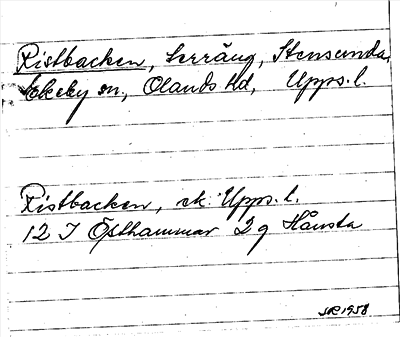 Ristbacken, terräng, Stensunda,
Ekeby sn., Olands hd, Upps. l.
Ristbacken, ek. Upps. l.
12 I Östhammar 2 g Hånsta
1958